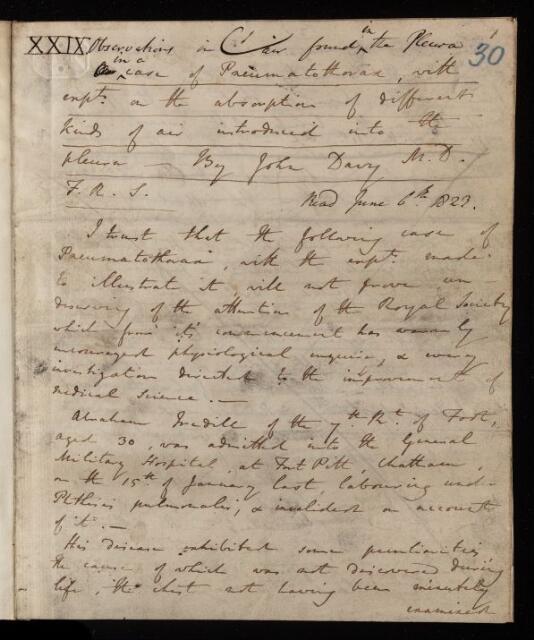 XXIX. Observations on air found in the Pleura 30
in a case of Pneumatothorax, with
expts. on the absorption of different
kinds of air introduced into the
pleura — By John Davy M.D.
F.R.S. Read June 6th 1823.
I trust that the following case of
Pneumatothorax, with the expts. made
to illustrate it, will not prove un
deserving of the attention of the Royal Society
which from its commencement has warmly
encouraged physiological inquiries, & every
investigation directed to the improvement of
medical science. —
Abraham of the 7th Rt. of Foot,
aged 30, was admitted into the General
Military Hospital, at Fort Pitt, Chatham,
on the 15th of January last, labouring under
Phthisis pulmonalis, & invalided on account
of it. —
His disease exhibited some peculiarities
the cause of which was not discovered during
life, the chest not having been minutely
examined